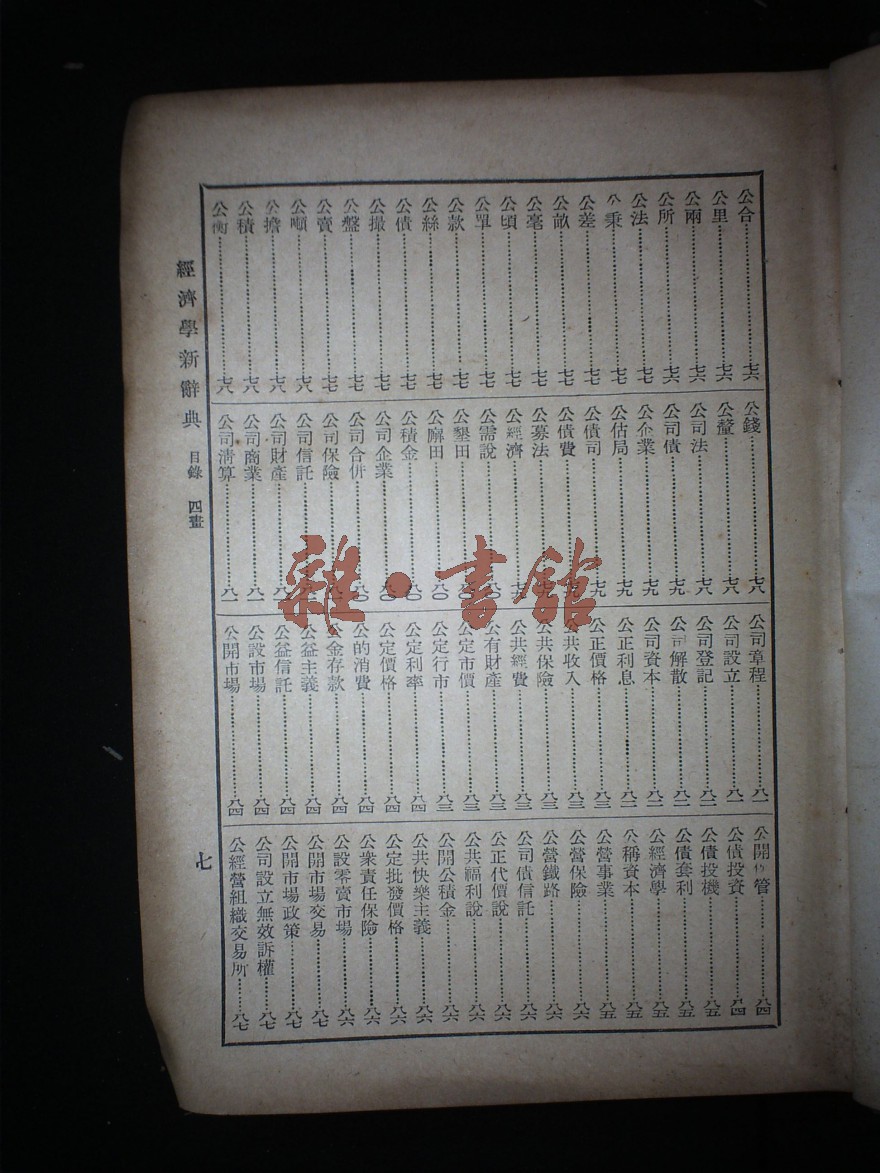 公合……七六
公里……七六
公兩……七六
公所……七六
公法……七七
公秉……七七
公差……七七
公畝……七七
公毫……七七
公頃……七七
公單……七七
公款……七七
公絲……七七
公債……七七
公撮……七七
公盤……七七
公賣……七七
公噸……七八
公擔……七八
公積……七八
公衡……七八
公錢……七八
公釐……七八
公司法……七八
公司債……七九
公企業……七九
公估局……七九
公債司……七九
公債費……七九
公募法……七九
公經濟……七九
公需說……八〇
公墾田……八〇
公廨田……八〇
公積金……八〇
公司企業……八〇
公司合併……八〇
公司保險……
公司信託……
公司財產……八一
公司商業……八一
公司清算……八一
公司章程……八一
公司設立……八一
公司登記……八二
公司解散……八二
公司資本……八二
公正利息……八二
公正價格……八三
公共收入……八三
公共保險……八三
公共經費……八三
公有財產……八三
公定市價……八三
公定行市……八三
公定利率……八四
公定價格……八四
公的消費……八四
公金存款……八四
公益主義……八四
公益信託……八四
公設市場……八四
公開市場……八四
公開 管……八四
公債投資……八四
公債投機……八五
公債套利……八五
公經濟學……八五
公稱資本……八五
公營事業……八五
公營保險……八六
公營鐵路……八六
公司債信託……八六
公正代價說……八六
公共福利說……八六
公開公積金……八六
公共快樂主義……八六
公定批發價格……八六
公衆責任保險……八六
公設零賣市場……八六
公開市場交易……八七
公開市場政策……八七
公司設立無效訴權……八七
公經營組織交易所……八七
經濟學新辭典 目錄 四畫
七
雜·書館